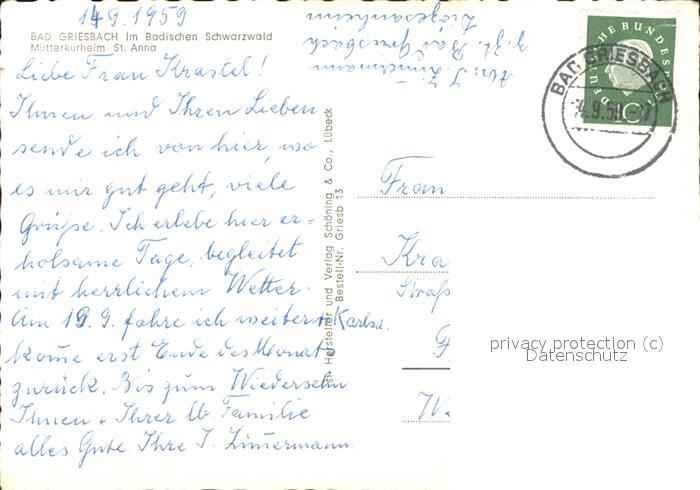 14.9.1959
BAD GRIESBACH im Badischen Schwarzwald
Mütterkurheim St. Anna
Liebe Frau Krastel!
Ihnen und Ihren Lieben
sende ich von hier, wo
es mir gut geht, viele
Grüße. Ich erlebe hier er=
holsame Tage, begleitet
mit herrlichem Wetter.
Am 19.9. fahre ich weiter n. Karlsr.
kome erst Ende des Monats
zurück. Bis zum Wiedersehn
Ihnen + Ihrer lb. Familie
alles Gute Ihre J. Zimmermann.
Abs: J. Zimmermann
z. Zt. Bad Griesbach
Hersteller und Verlag Schöning & Co., Lübeck
Bestell-Nr. Griesb 13
DEUTSCHE BUNDESPOST
10
BAD GRIESBACH
Frau
Kra
Straß
privacy protection (c)
Datenschutz